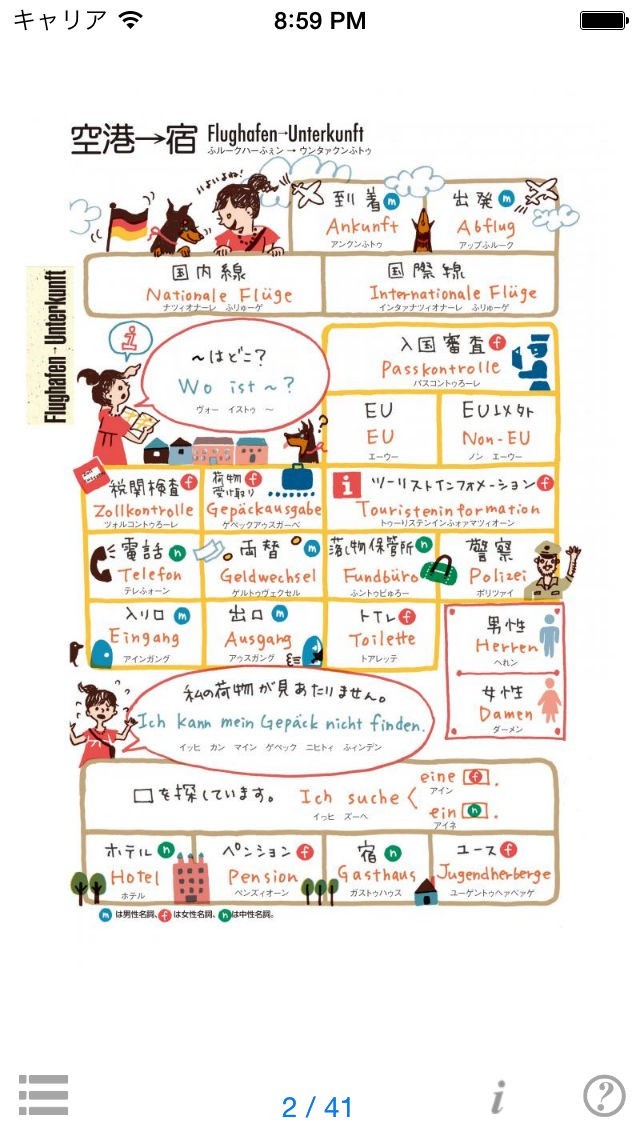 キャリア 8:59 PM
空港→宿 Flughafen→Unterkunft
ふルークハーふェン → ウンタァクンふトゥ
いよいよね!
到着 m 出発 m
Ankunft Abflug
アンクンふトゥ アップふルーク
国内線 国際線
Nationale Flüge Internationale Flüge
ナツィオナーレ ふリューゲ インタァナツィオナーレ ふリューゲ
Flughafen→Unterkunft
i
~はどこ?
Wo ist ~?
ヴォー イストゥ ~
入国審査 f
Passkontrolle
パスコントゥろーレ
EU EU以外
EU Non-EU
エーウー ノン エーウー
税関検査 f 荷物受け取り f i ツーリストインフォメーション f
Zollkontrolle Gepäckausgabe Touristeninformation
ツォルコントゥろーレ ゲペックアゥスガーベ トゥーリステンインふォァマツィオーン
電話 n 両替 m 落し物保管所 n 警察
Telefon Geldwechsel Fundbüro Polizei
テレふォーン ゲルトゥヴェクセル ふントゥビゅろー ポリツァイ
入り口 m 出口 m トイレ f 男性
Eingang Ausgang Toilette Herren
アインガング アゥスガング トアレッテ へれン
女性
Damen
ダーメン
私の荷物が見あたりません。
Ich kann mein Gepäck nicht finden.
イッヒ カン マイン ゲペック ニヒティ ふィンデン
□を探しています。 Ich suche < eine f.
イっヒ ズーへ アイン
ein n.
アイネ
ホテル n ペンション f 宿 n ユース f
Hotel Pension Gasthaus Jugendherberge
ホテル ペンズィオーン ガストゥハウス ユーゲントゥへァベァゲ
m は男性名詞、f は女性名詞、n は中性名詞。
2 / 41
i ?